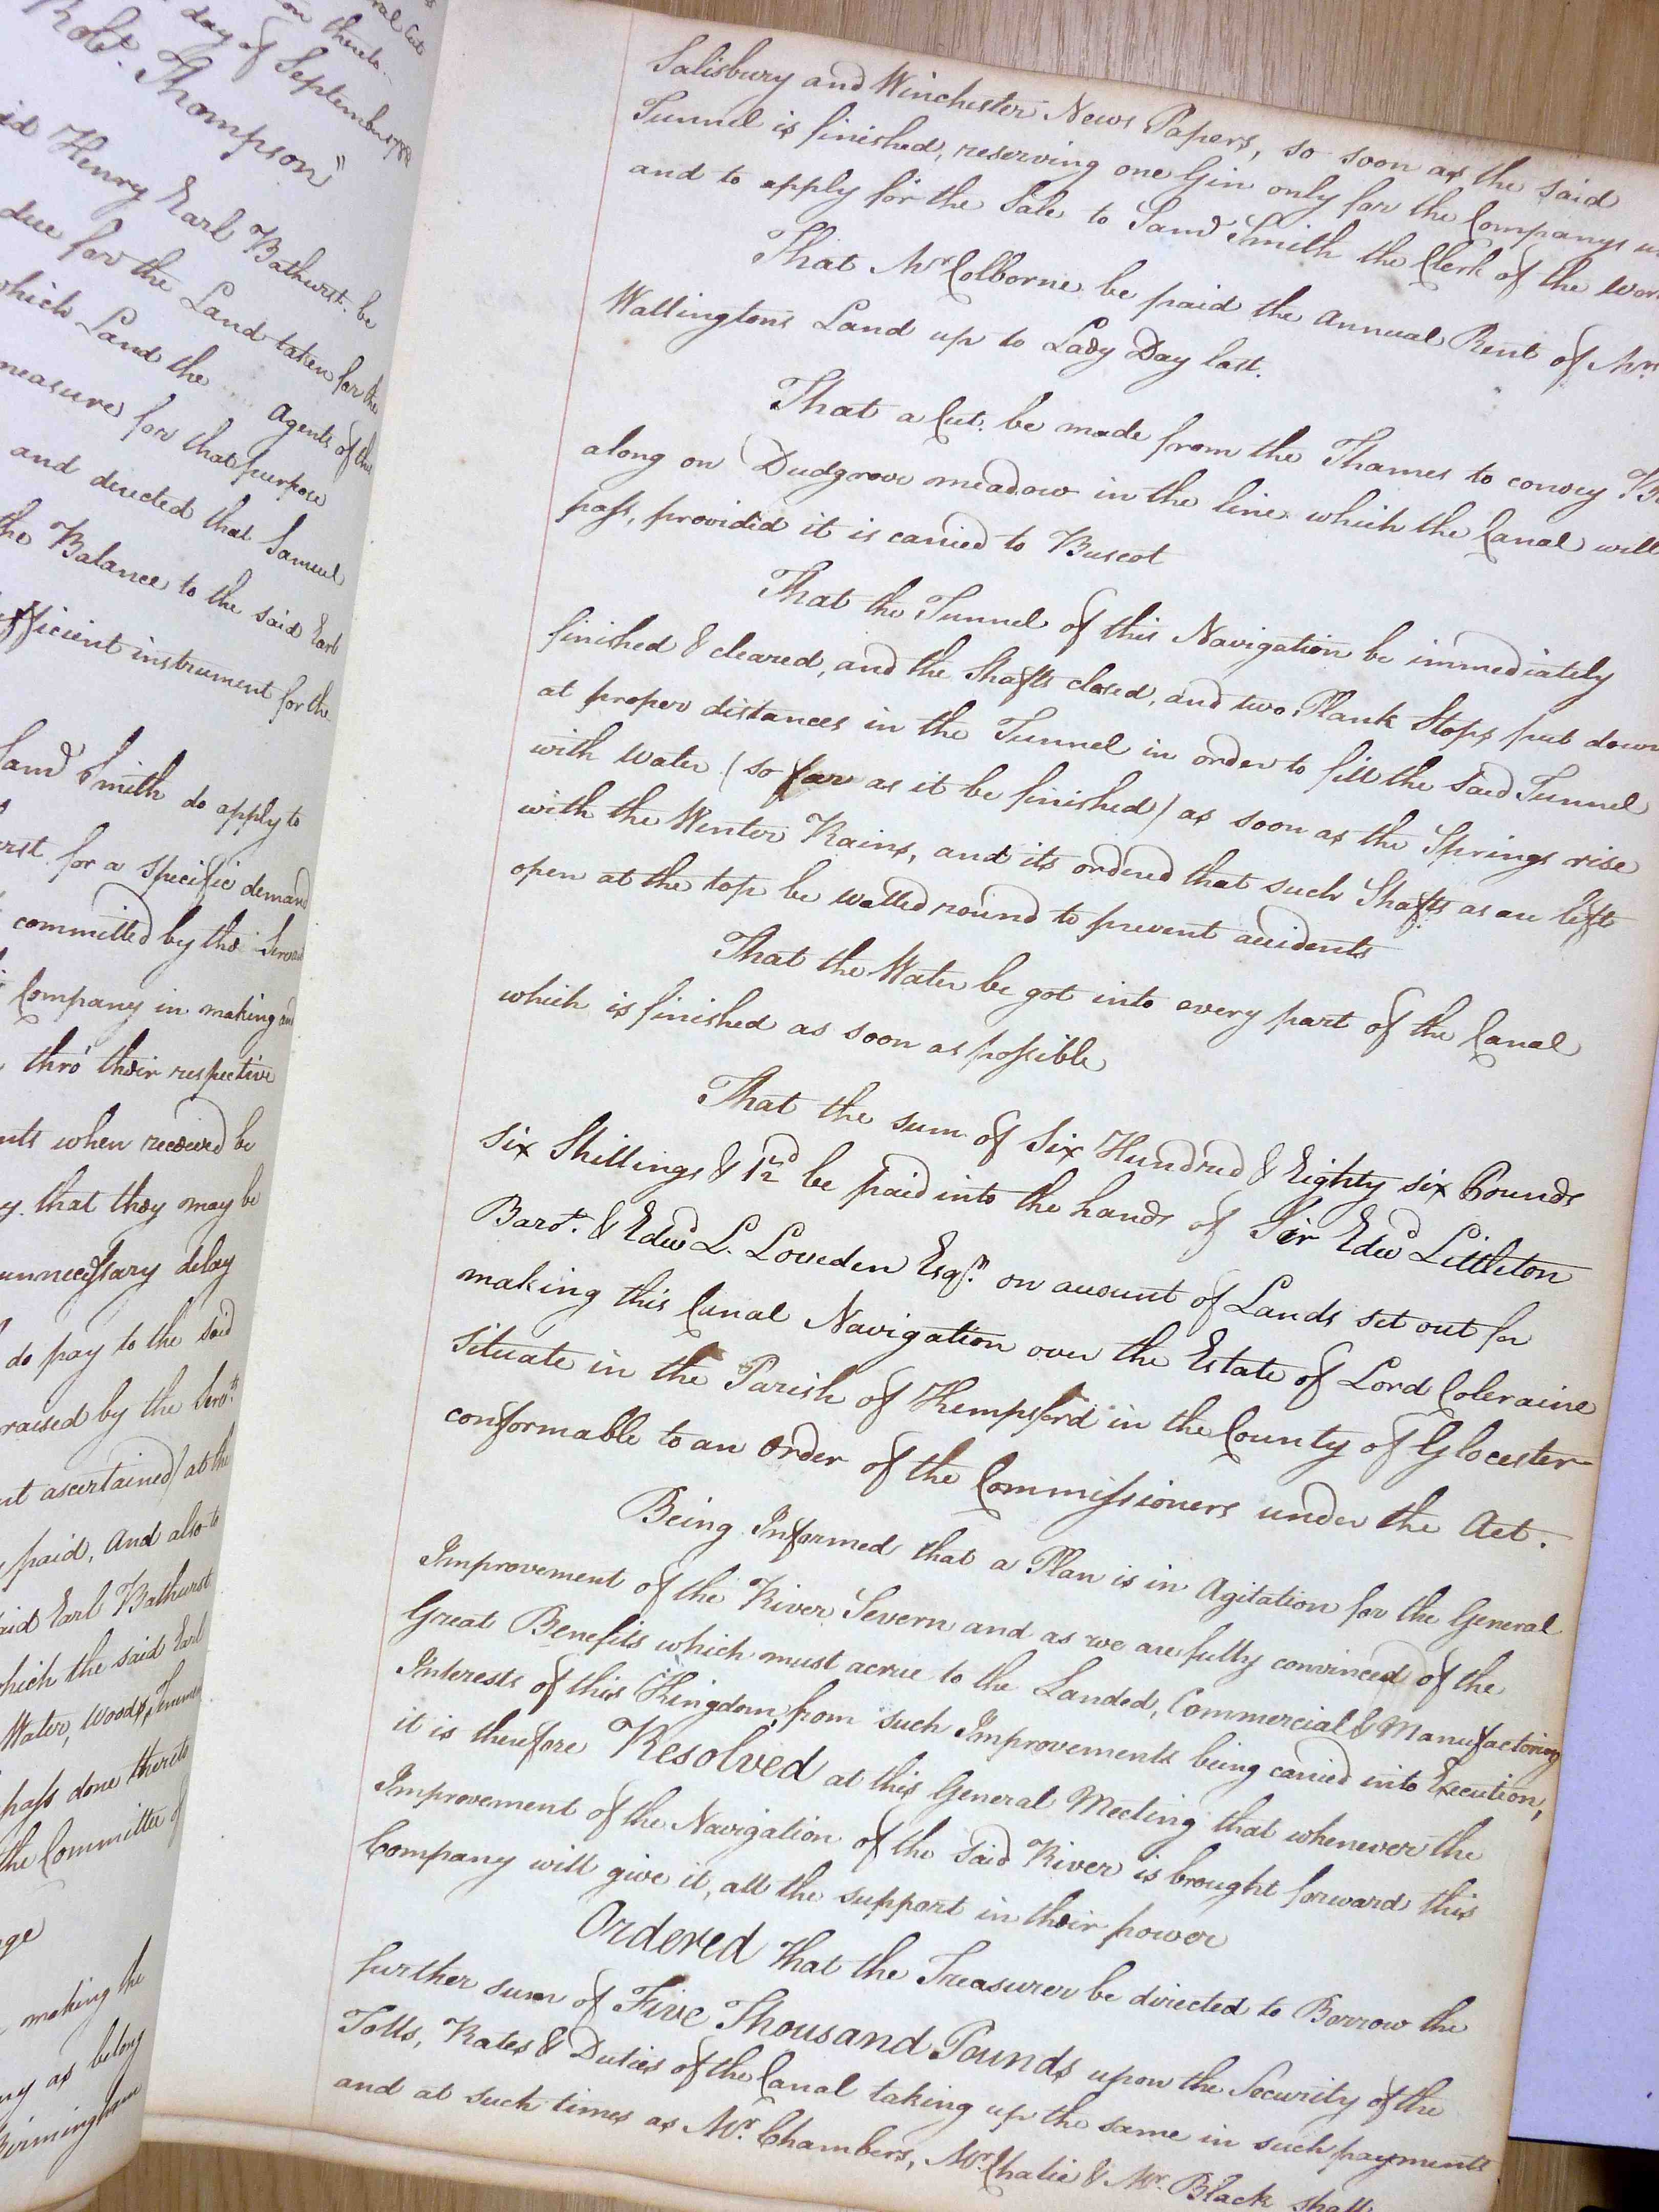 ral Cuts
on thereto.
day of September 1788
Robt. Thompson"
id Henry Earl Bathurst. be
due for the Land taken for the
which Land the Agents of the
measure for that purpose
and directed that Samuel
the Balance to the said Earl
efficient instrument for the
Saml Smith do apply to
urst for a specific demand
committed by the Servants
Company in making and
thro' their respective
nts when received be
y. that they may be
unnecessary delay
do pay to the said
raised by the Servts.
nt ascertained) at the
paid, And also to
aid Earl Bathurst
which the said Earl
Water, Woods,
pass done thereto
the Committee of
ge
making the
ny as belong
Birmingham
Salisbury and Winchester News Papers, so soon as the said
Tunnel is finished, reserving one Gin only for the Companys
and to apply for the Sale to Saml Smith the Clerk of the Wor
That Mr Colborne be paid the Annual Rent of Mr
Wallingtons Land up to Lady Day last.
That a Cut. be made from the Thames to convey
along on Dudgrove meadow in the line which the Canal will
pass, provided it is carried to Buscot
That the Tunnel of this Navigation be immediately
finished & cleared, and the Shafts closed, and two Plank Stops put down
at proper distances in the Tunnel in order to fill the said Tunnel
with Water (so far as it be finished) as soon as the Springs rise
with the Winter Rains, and its ordered that such Shafts as are left
open at the top be walled round to prevent accidents
That the Water be got into every part of the Canal
which is finished as soon as possible
That the sum of Six Hundred & Eighty six Pounds
six Shillings & 1½d be paid into the hands of Sir Edwd Littleton
Barot. & Edwd L. Loveden Esqr. on account of Lands set out for
making this Canal Navigation over the Estate of Lord Coleraine
situate in the Parish of Kempsford in the County of Glocester
conformable to an Order of the Commissioners under the Act.
Being Informed that a Plan is in Agitation for the General
Improvement of the River Severn and as we are fully convinced of the
Great Benefits which must acrue to the Landed, Commercial & Manufactoring
Interests of this Kingdom, from such Improvements being carried into Execution,
it is therefore Resolved at this General Meeting that whenever the
Improvement of the Navigation of the said River is brought forward this
Company will give it, all the support in their power
Ordered that the Treasurer be directed to Borrow the
further sum of Five Thousand Pounds upon the Security of the
Tolls, Rates & Duties of the Canal taking up the same in such payments
and at such times as Mr. Chambers, Mr Chalie & Mr. Black shall